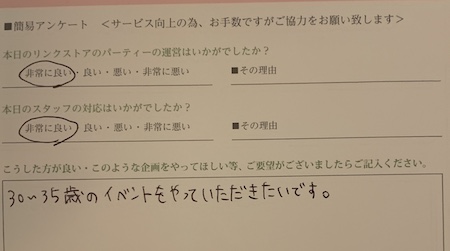 ■簡易アンケート　＜サービス向上の為、お手数ですがご協力をお願い致します＞
本日のリンクストアのパーティーの運営はいかがでしたか？
非常に良い・良い・悪い・非常に悪い　■その理由
本日のスタッフの対応はいかがでしたか？
非常に良い・良い・悪い・非常に悪い　■その理由
こうした方が良い・このような企画をやってほしい等、ご要望がございましたらご記入ください。
30〜35歳のイベントをやっていただきたいです。